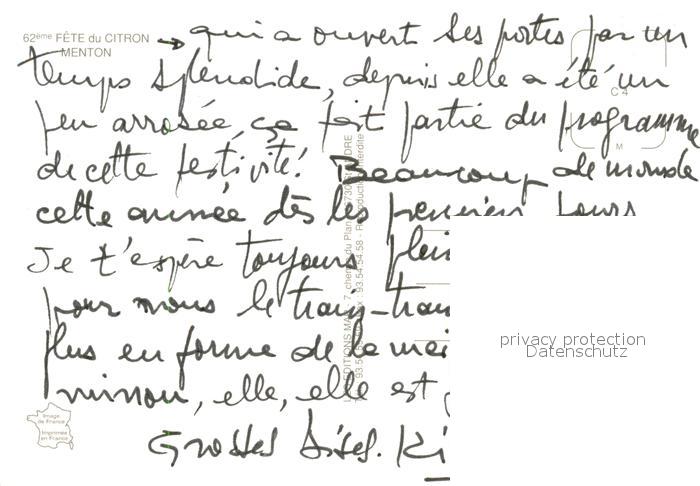 62ème FÊTE du CITRON
MENTON
→ qui a ouvert ses portes par un
temps splendide, depuis elle a été un
peu arrosée, ça fait partie du programme
de cette festivité! Beaucoup de monde
cette année dès les premiers jours
Je t'espère toujours plein
pour nous le train-train
plus en forme de la
minou, elle, elle est
Grosses bises. Ki
C 4
M
LES EDITIONS MAR
Image
de France
Imprimée
en France
privacy protection
Datenschutz